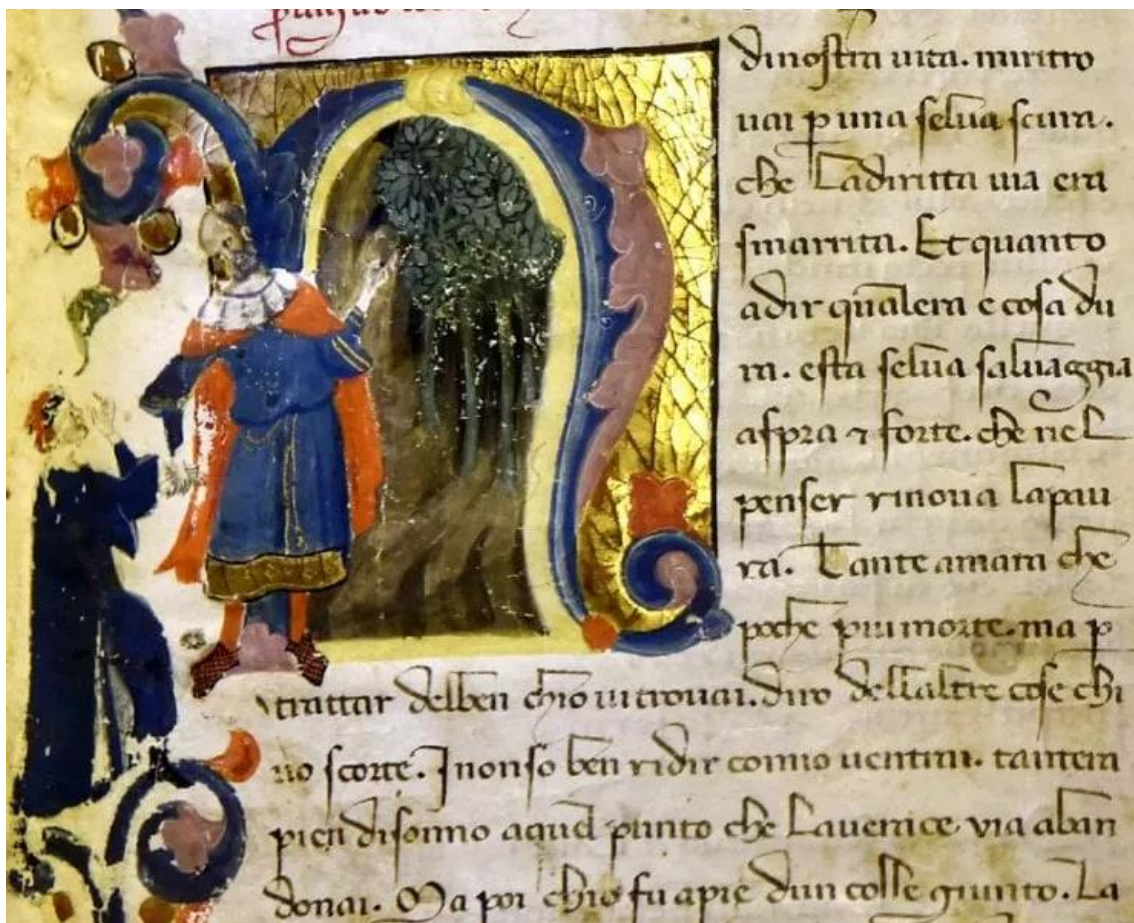 dinostra uita. miritro
uai ꝑ una selua scura.
che ladiritta uia era
smarrita. Et quanto
adir qualera e cosa du
ra. esta selua saluaggia
aspra ⁊ forte. che nel
penser rinoua lapau
ra. Tante amara che
poche piu morte. ma ꝑ
trattar delben chio ui trouai. diro dellaltre cose chi
uo scorte. I non so ben ridir comio uentrai. tantera
pien disonno aquel punto che lauerace via aban
donai. Ma poi chio fu apie dun colle giunto. La